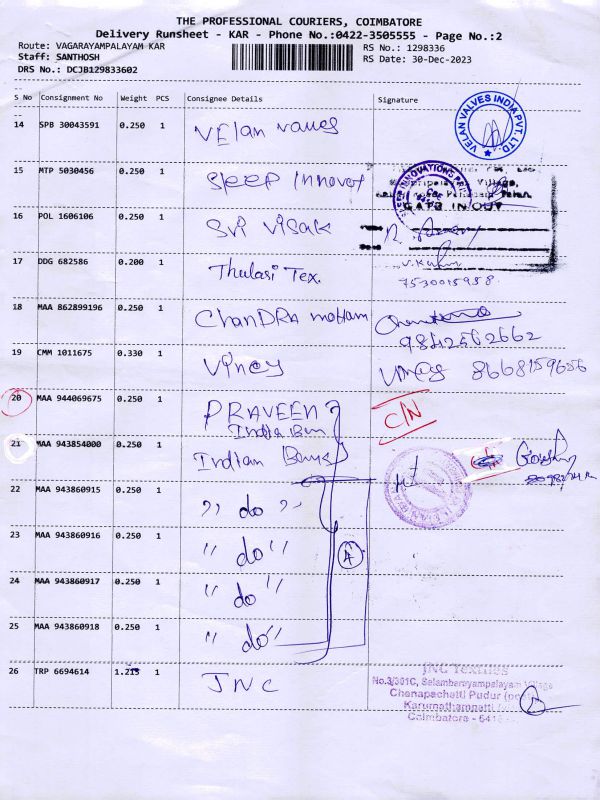 THE PROFESSIONAL COURIERS, COIMBATORE
Delivery Runsheet - KAR - Phone No.:0422-3505555 - Page No.:2
Route: VAGARAYAMPALAYAM KAR
RS No.: 1298336
Staff: SANTHOSH
RS Date: 30-Dec-2023
DRS No.: DCJB129833602
S No Consignment No Weight PCS Consignee Details Signature
14 SPB 30043591 0.250 1 VElan valves
VELAN VALVES INDIA PVT. LTD.
15 MTP 5030456 0.250 1 Sleep Innovat
SLEEP INNOVATIONS
Village,
GATE IN OUT
16 POL 1606106 0.250 1 Sri Visak
17 DDG 682586 0.200 1 Thulasi Tex.
7530015958
18 MAA 862899196 0.250 1 ChanDRA moham
9842562662
19 CMM 1011675 0.330 1 Vinoy
8668159656
20 MAA 944069675 0.250 1 PRAVEEN C/N
21 MAA 943854000 0.250 1 Indian
22 MAA 943860915 0.250 1 ,, do ,,
23 MAA 943860916 0.250 1 " do "
A
24 MAA 943860917 0.250 1 " do "
25 MAA 943860918 0.250 1 " do "
26 TRP 6694614 1.215 1 JNC
JNC TEXTILES
No.3/301C, Selambarayampalayam Village
Chenapachatti Pudur
Karumathampatti
Coimbatore - 641